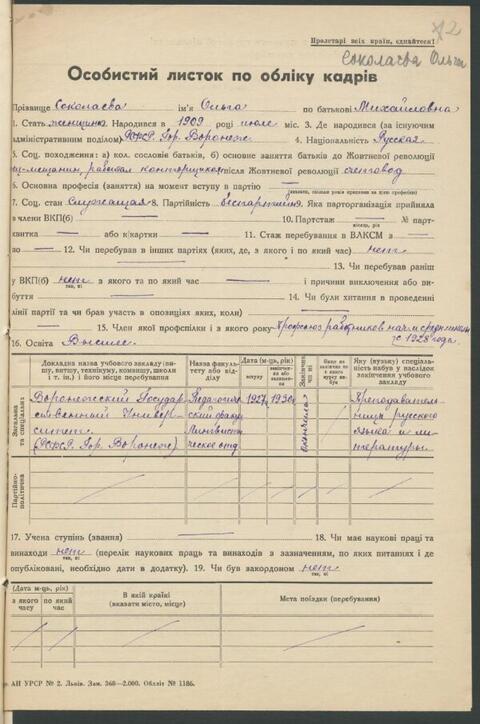 Пролетарі всіх країн, єднайтеся!
Соколаева Ольга
Особистий листок по обліку кадрів
Прізвище Соколаева ім'я Ольга по батькові Михайловна
1. Стать женщина Народився в 1909 році июле міс. 3. Де народився (за існуючим
адміністративним поділом) РСФСР. Гор. Воронеж 4. Національність Русская
5. Соц. походження: а) кол. сословіє батьків, б) основне заняття батьків до Жовтневої революції
мещанин, работал конторщиком після Жовтневої революції счетовод
6. Основна професія (заняття) на момент вступу в партію
7. Соц. стан служащая 8. Партійність беспартийная. Яка парторганізація прийняла
в члени ВКП(б) 10. Партстаж № парт-
місяць, рік
квитка або к/картки 11. Стаж перебування в ВЛКСМ з
по 12. Чи перебував в інших партіях (яких, де, з якого і по який час) нет
13. Чи перебував раніш
у ВКП(б) нет з якого та по який час і причини виключення або ви-
так, ні
буття 14. Чи були хитання в проведенні
лінії партії та чи брав участь в опозиціях яких, коли)
15. Член якої профспілки і з якого року Профсоюз работников нач. и средн. школы
с 1928 года.
16. Освіта Высшее
Докладна назва учбового закладу (ви-
шу, втишу, технікуму, комвишу, школи
і т. ін.) і його місце перебування
Назва факуль-
тету або від-
ділу
Дата (м-ць, рік)
вступу
Закінчив
чи ні
Яку (вузьку) спеціаль-
ність набув у наслідок
закінчення учбового
закладу
Загальна
та спеціальна
Воронежский Государ-
ственный Универ-
ситет
(РСФСР. Гор. Воронеж)
Педагогиче-
ский факул.
Лингвисти-
ческое отд.
1927 1930
окончила
Преподаватель-
ница русского
языка и ли-
тературы.
Партійно-
політична
17. Учена ступінь (звання) 18. Чи має наукові праці та
винаходи нет (перелік наукових праць та винаходів з зазначенням, по яких питаннях і де
так, ні
опубліковані, необхідно дати в додатку). 19. Чи був закордоном нет
так, ні
(Дата м-ць, рік)
з якого
часу
по який
час
В якій країні
(вказати місто, місце)
Мета поїздки (перебування)
АН УРСР № 2. Львів. Зам. 360—2.000. Обліт № 1186.